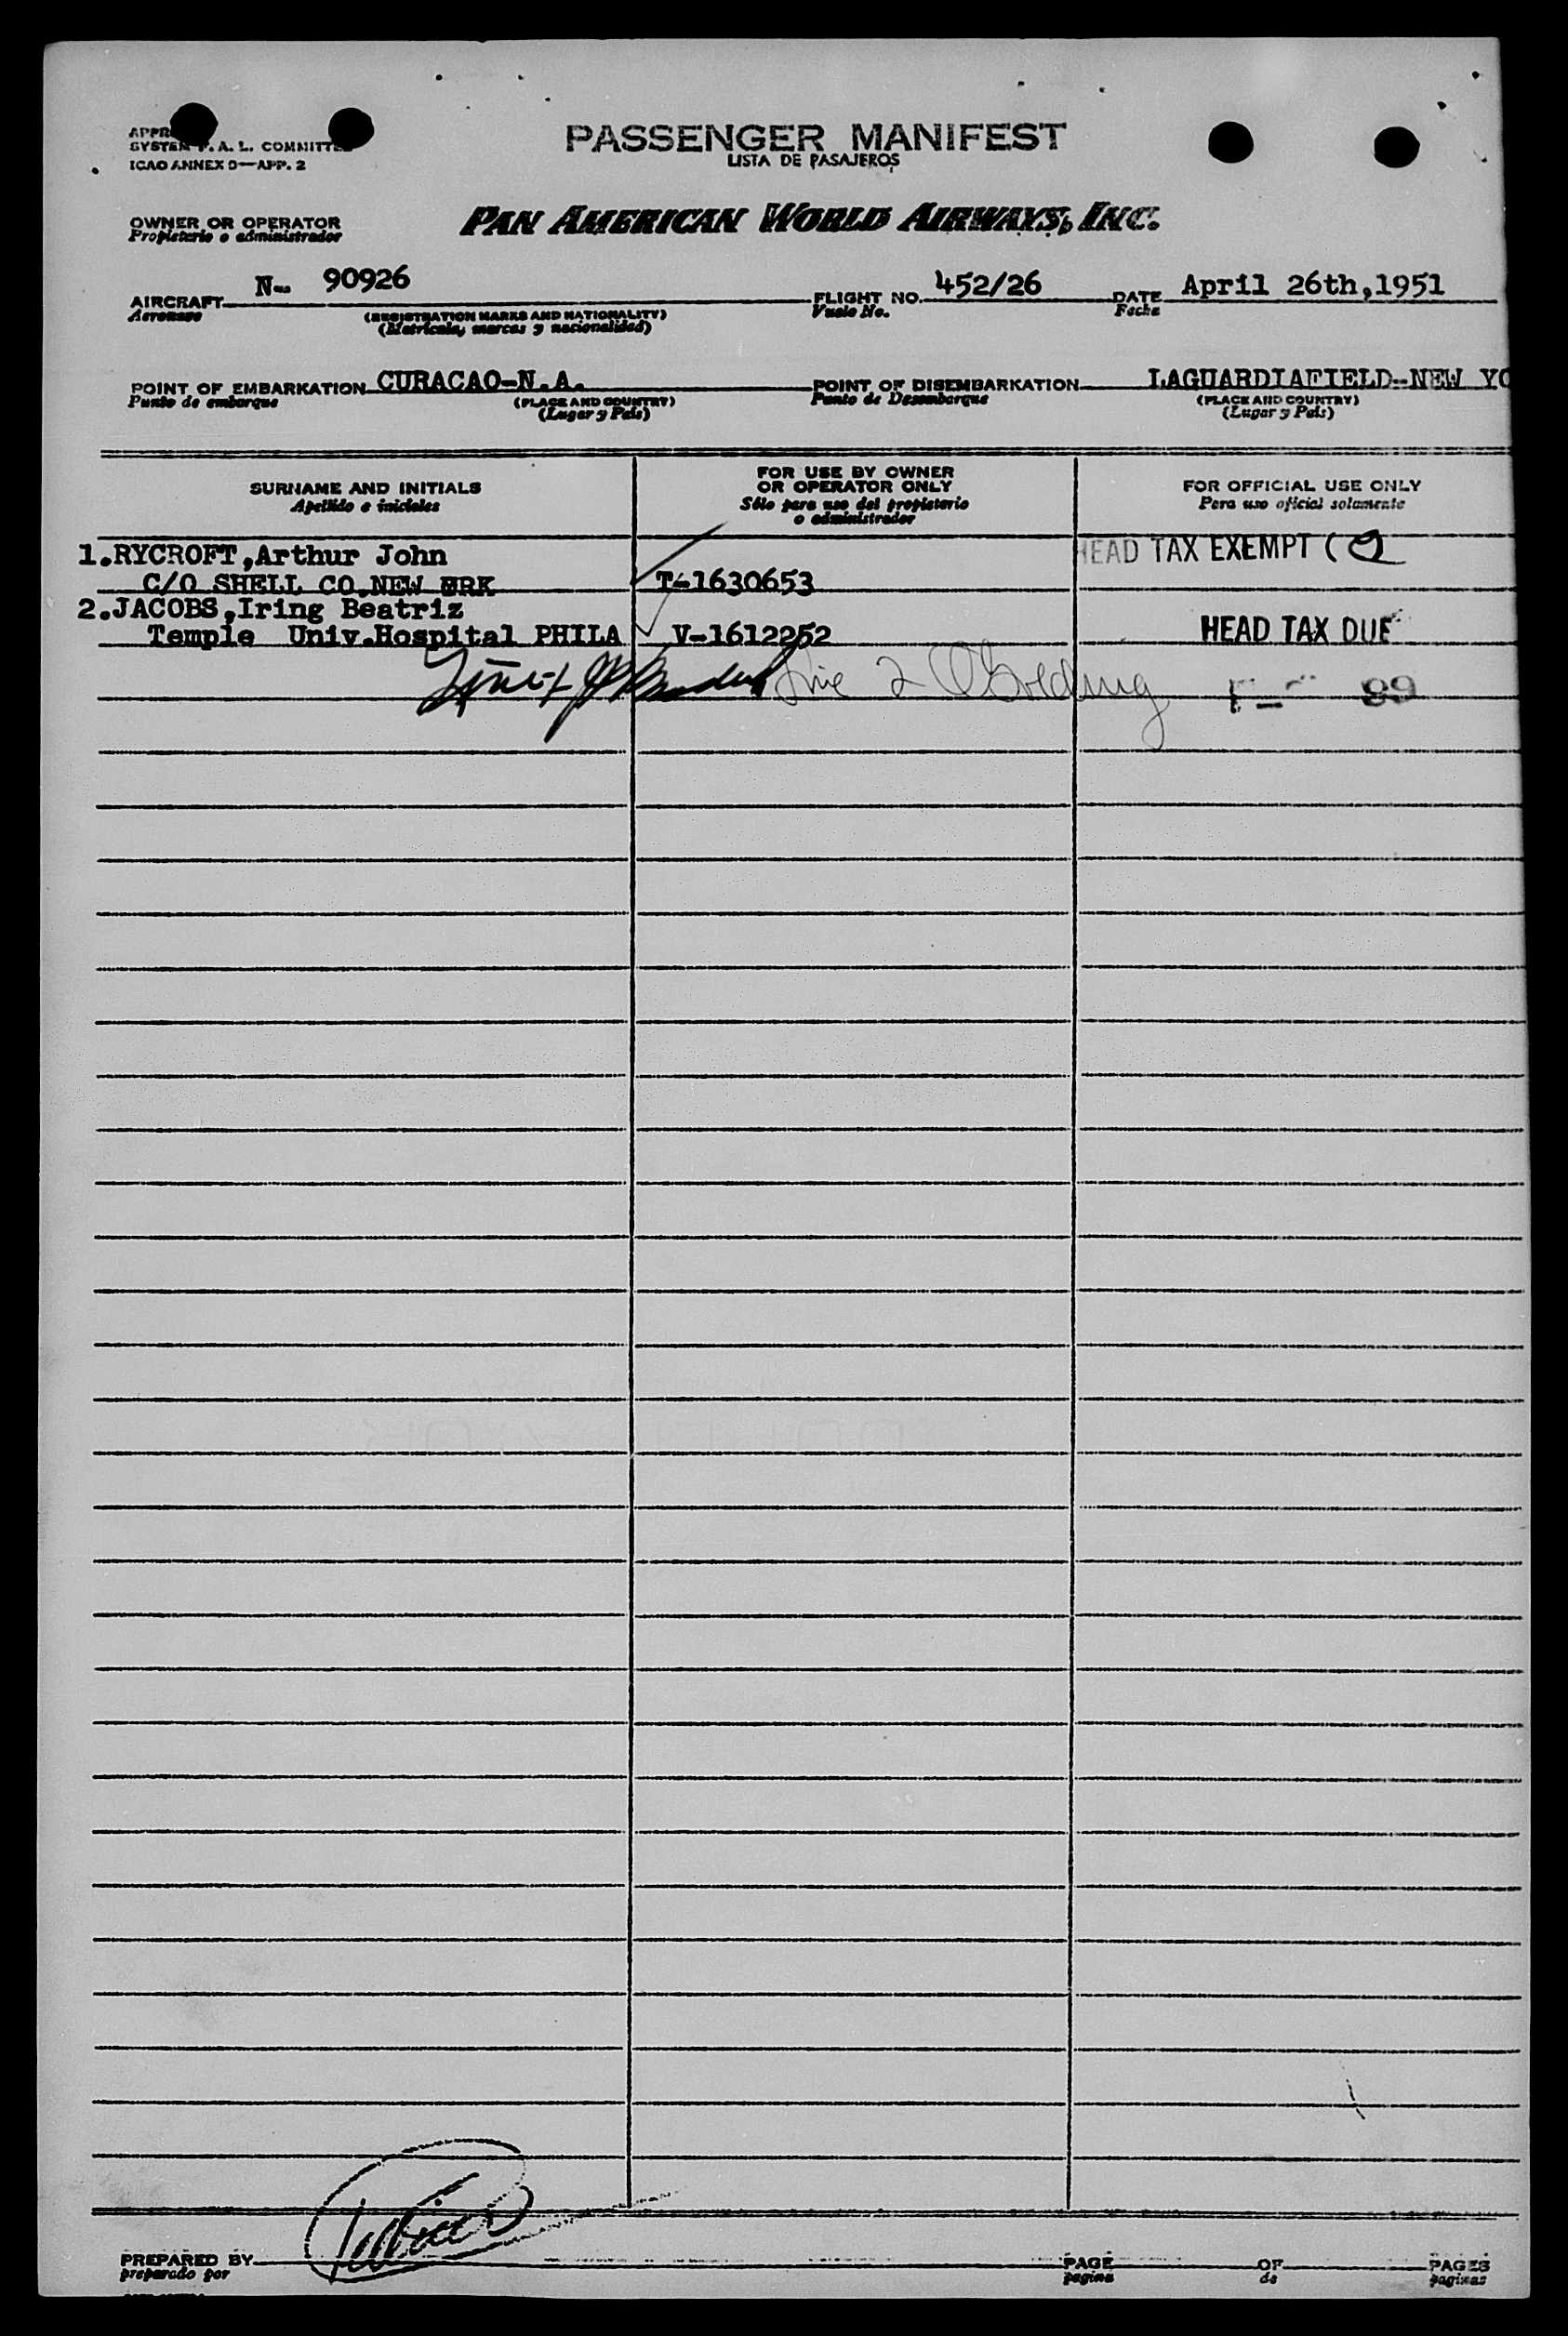 PASSENGER MANIFEST
LISTA DE PASAJEROS
SYSTEM F. A. L. COMMITTEE
ICAO ANNEX 9—APP. 2
OWNER OR OPERATOR
Propietario o administrador
PAN AMERICAN WORLD AIRWAYS, INC.
AIRCRAFT N- 90926 FLIGHT NO. 452/26 DATE April 26th,1951
Aeronave (REGISTRATION MARKS AND NATIONALITY) Vuelo No. Fecha
(Matrícula, marcas y nacionalidad)
POINT OF EMBARKATION CURACAO-N.A. POINT OF DISEMBARKATION LAGUARDIAFIELD-NEW YO
Punto de embarque (PLACE AND COUNTRY) Punto de Desembarque (PLACE AND COUNTRY)
(Lugar y País) (Lugar y País)
SURNAME AND INITIALS
Apellido e iniciales
FOR USE BY OWNER
OR OPERATOR ONLY
Sólo para uso del propietario
o administrador
FOR OFFICIAL USE ONLY
Para uso oficial solamente
1.RYCROFT,Arthur John HEAD TAX EXEMPT (
C/O SHELL CO.NEW T-1630653
2.JACOBS,Iring Beatriz
Temple Univ.Hospital PHILA V-1612252 HEAD TAX DUE
Line 2
PREPARED BY PAGE OF PAGES
preparado por pagina de paginas